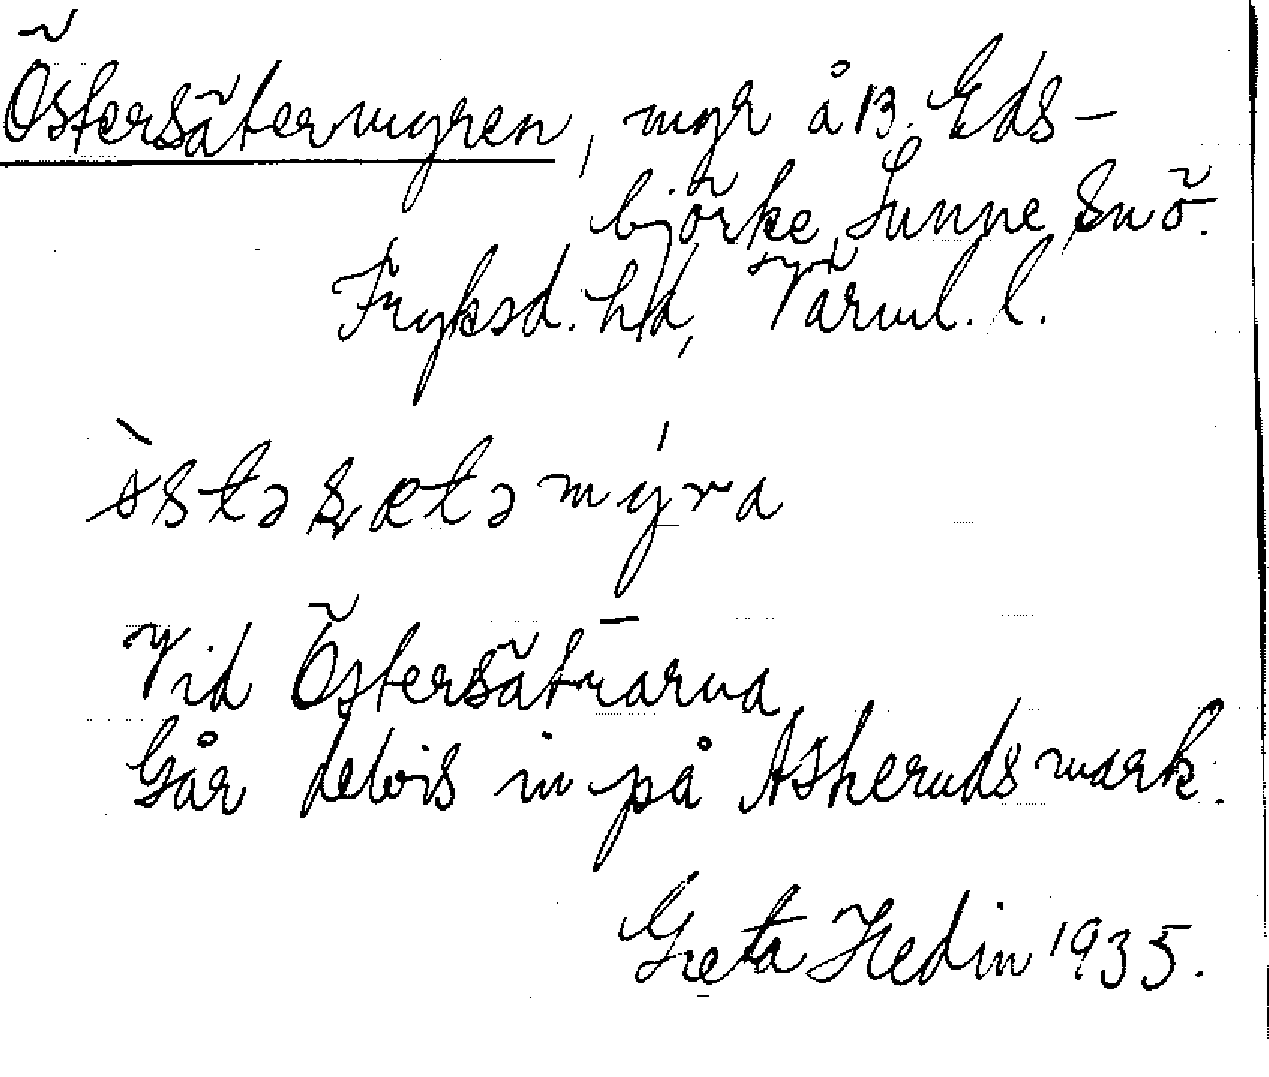 Östersätermyren, myr å B. Eds-
björke, Sunne sn ö.
Fryksd. hd, Värml. l.
Vid Östersätrarna
Går delvis in på Askeruds mark.
Greta Hedin 1935.